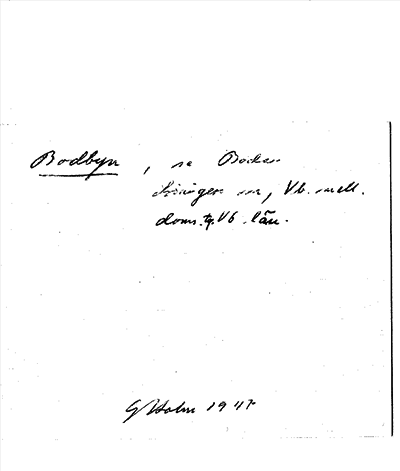 Bodbyn, se Backen
sn, Vb. mell.
doms. tg. Vb. län.
G Holm 1947